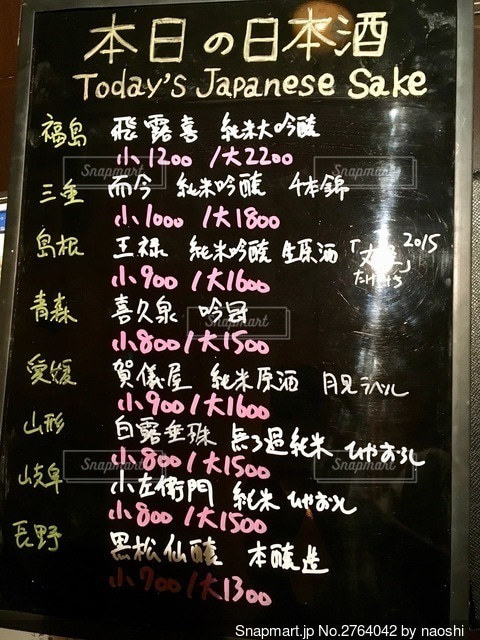 本日の日本酒
Today's Japanese Sake
福島 飛露喜 純米大吟醸
小1200 /大2200
三重 而今 純米吟醸 千本錦
小1000 /大1800
島根 王禄 純米吟醸 生原酒 2015
小900 /大1600
青森 喜久泉 吟冠
小800 /大1500
愛媛 賀儀屋 純米原酒 月見ラベル
小900 /大1600
山形 白露垂珠 無ろ過純米 ひやおろし
小800 /大1500
岐阜 小左衛門 純米 ひやおろし
小800 /大1500
長野 黒松仙醸 本醸造
小700 /大1300
Snapmart
Snapmart
Snapmart
Snapmart
Snapmart
Snapmart.jp No.2764042 by naoshi